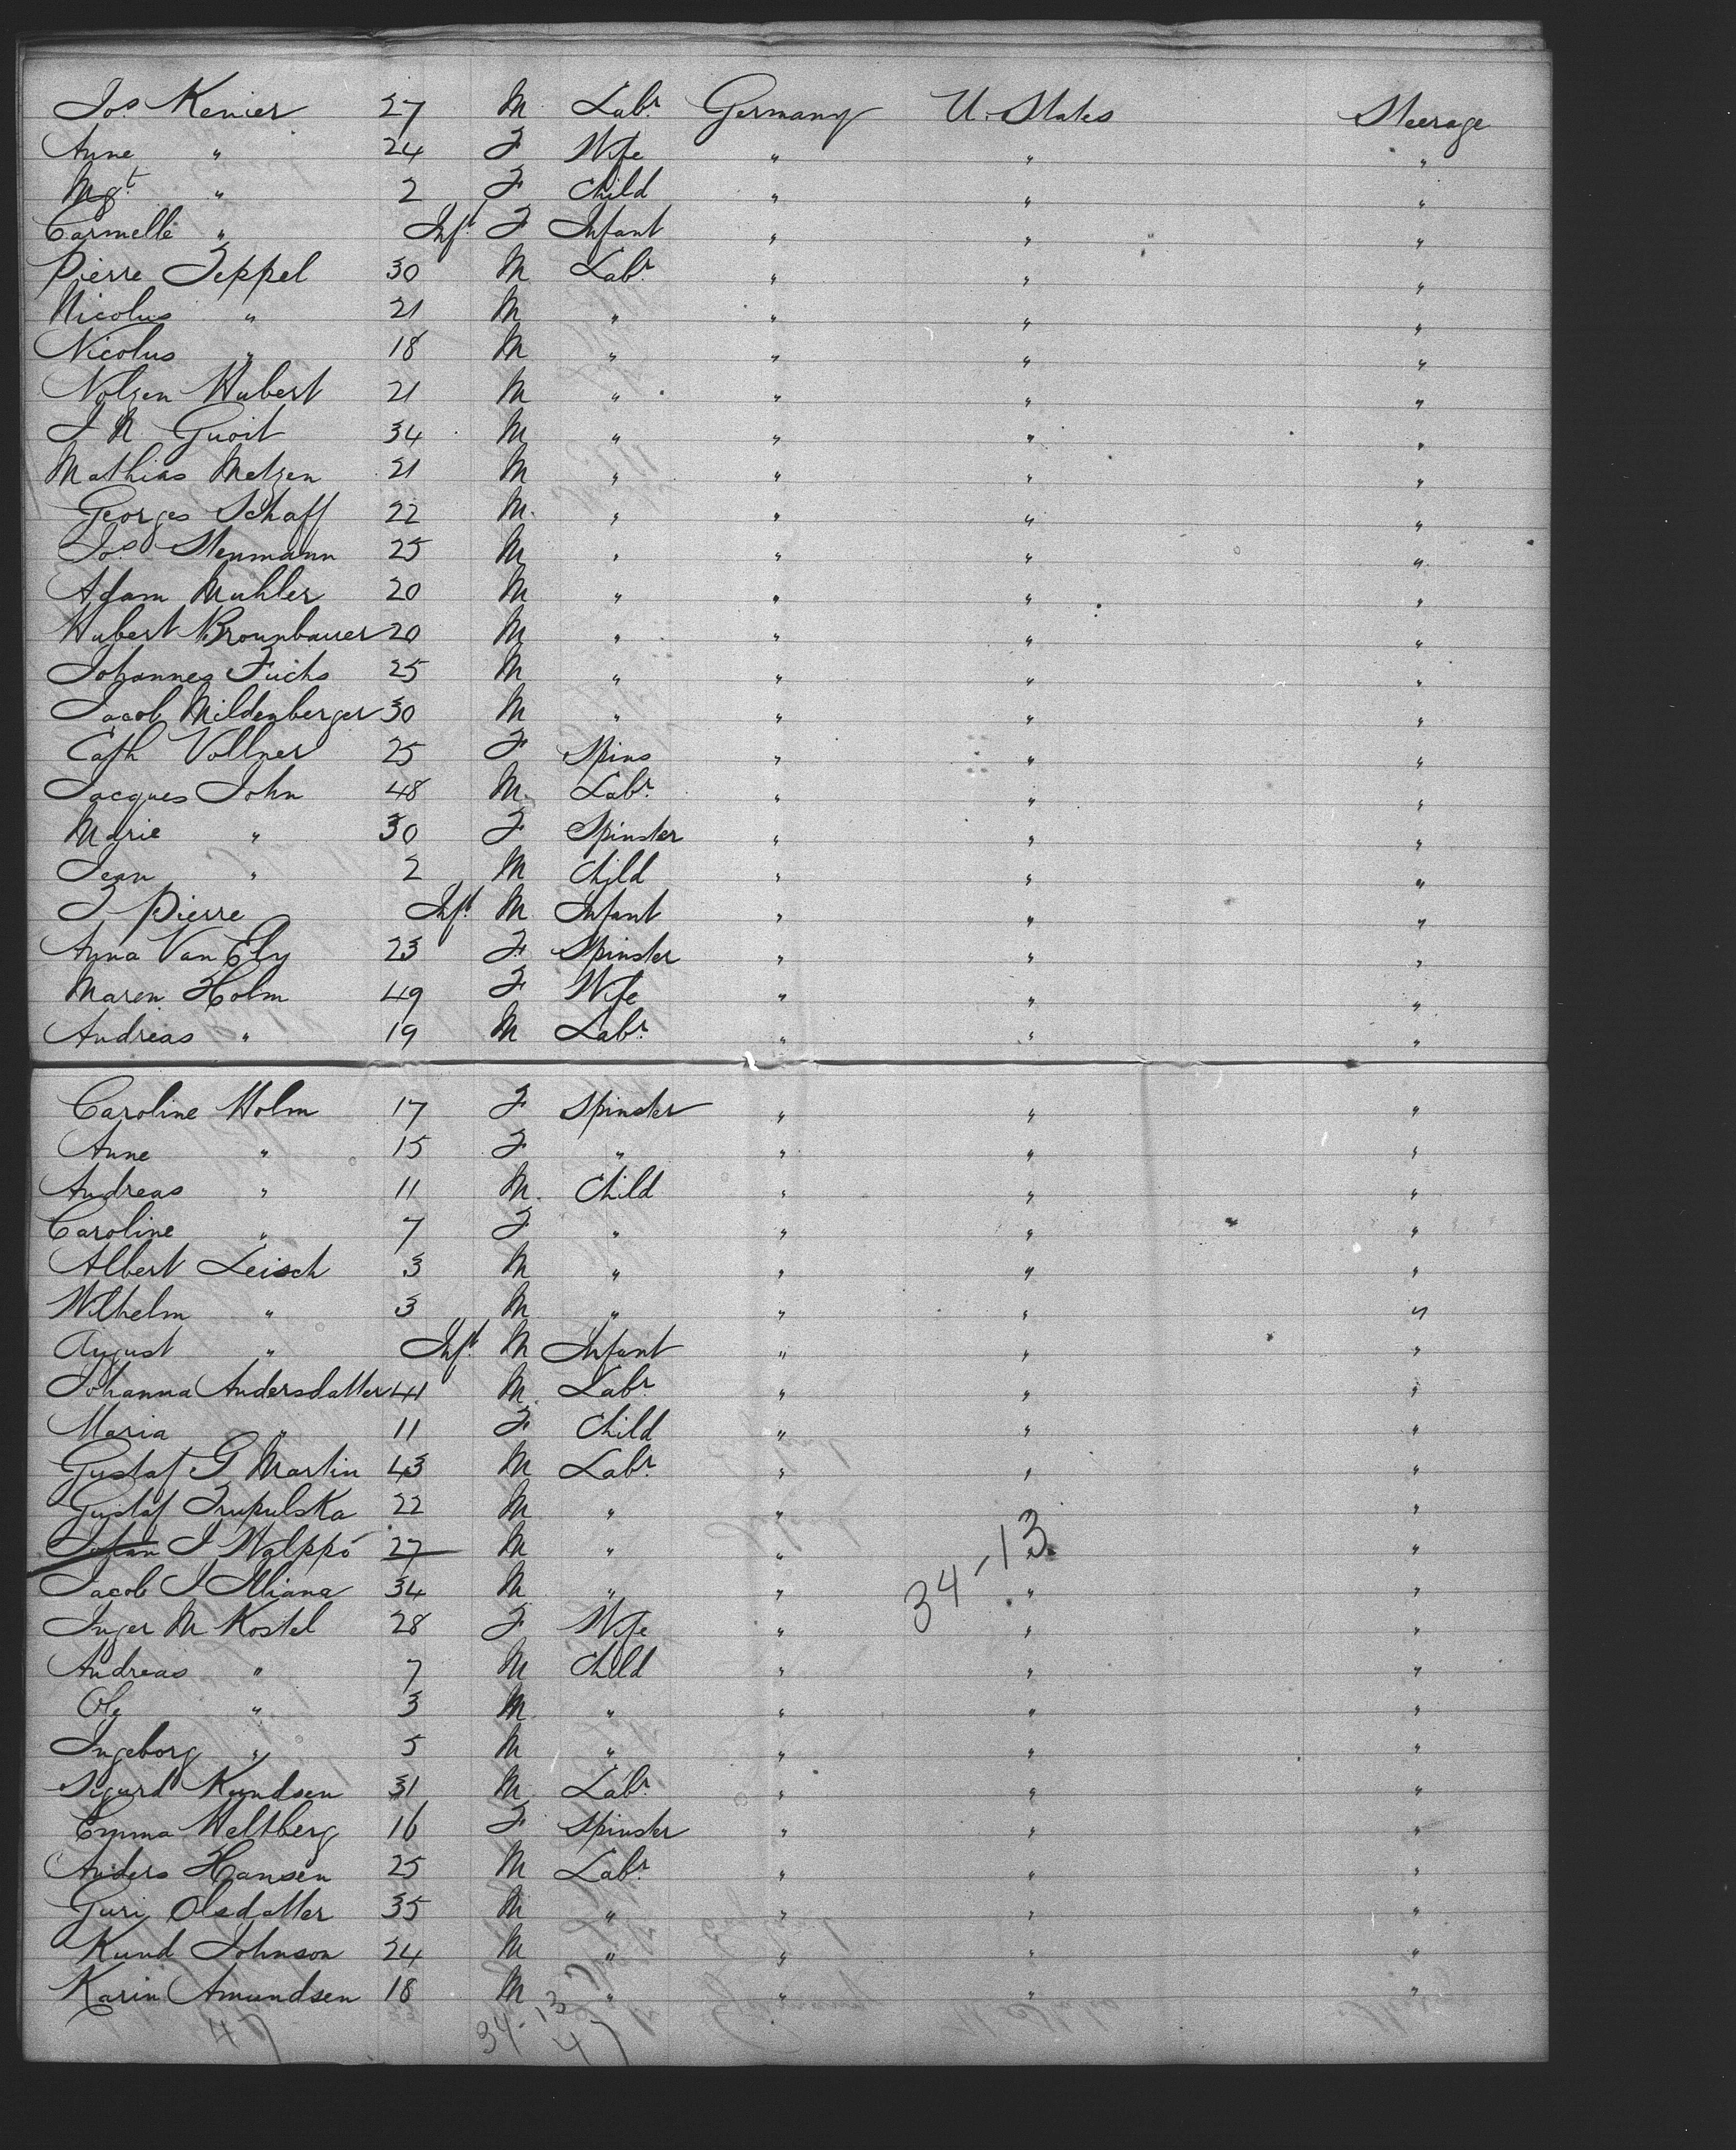 Jos Kenier 27 M Labr Germany U. States Steerage
Anne " 24 F Wife " " "
Mgt " 2 F Child " " "
Carmelle " Inft F Infant " " "
Pierre Teppel 30 M Labr " " "
Nicolus " 21 M " " " "
Nicolus " 18 M " " " "
Nolzen Hubert 21 M " " " "
J N Guoit 34 M " " " "
Mathias Metzen 21 M " " " "
Georges Schaff 22 M " " " "
Jos Stenmann 25 M " " " "
Adam Muhler 20 M " " " "
Hubert Brounbauer 20 M " " " "
Johannes Fuchs 25 M " " " "
Jacob Mildenberger 30 M " " " "
Cath Vollner 25 F Spins " " "
Jacques John 48 M Labr " " "
Marie " 30 F Spinster " " "
Jean " 2 M Child " " "
J Pierre Inft M Infant " " "
Anna Van Ely 23 F Spinster " " "
Maren Holm 49 F Wife " " "
Andreas " 19 M Labr " " "
Caroline Holm 17 F Spinster " " "
Anne " 15 F " " " "
Andreas " 11 M Child " " "
Caroline " 7 F " " " "
Albert Leisch 3 M " " " "
Wilhelm " 3 M " " " "
August " Inft M Infant " " "
Johanna Andersdatter 41 M Labr " " "
Maria " 11 F Child " " "
Gustaf G Martin 43 M Labr " " "
Gustaf Trupulska 22 M " " " "
Johan J Walppo 27 M " " " "
34-13
Jacob J Mliana 34 M " " " "
Inger M Kostel 28 F Wife " " "
Andreas " 7 M Child " " "
Ole " 3 M " " " "
Ingeborg " 5 M " " " "
Sigurd Kundsen 31 M Labr " " "
Emma Weltberg 16 F Spinster " " "
Anders Hansen 25 M Labr " " "
Guri Olsdatter 35 M " " " "
Kund Johnson 24 M " " " "
Karin Amundsen 18 M " " " "
47 34-13 47